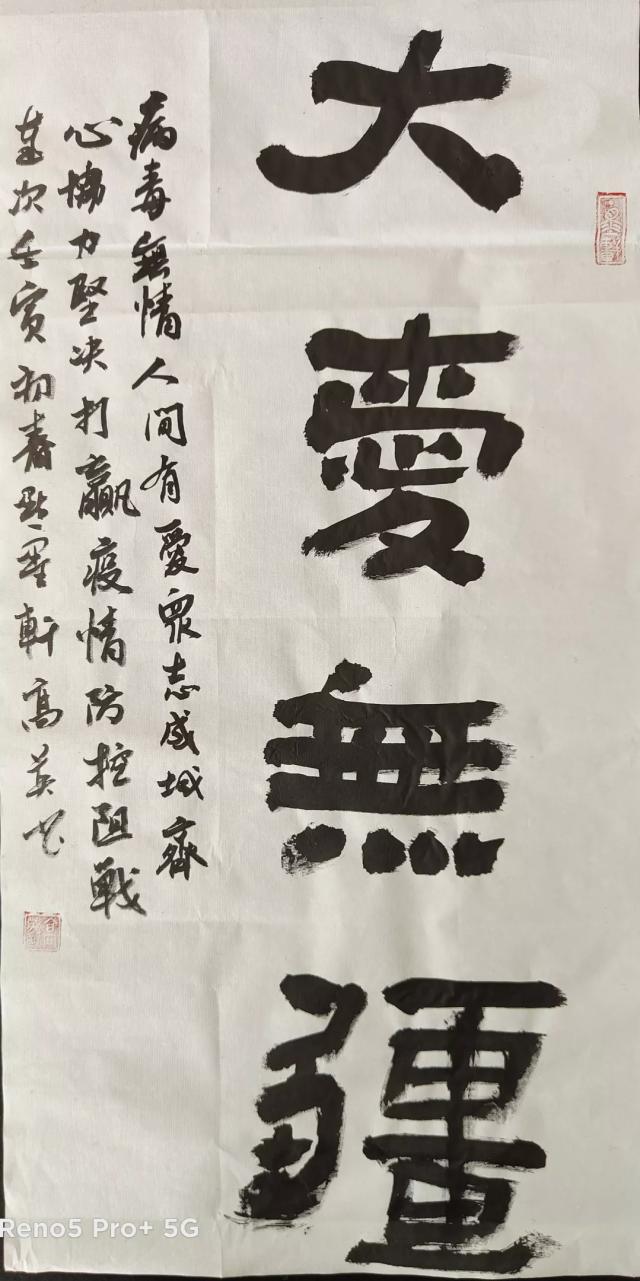 大愛無疆
病毒無情人間有愛眾志成城齊
心協力堅决打贏疫情防控阻戰
次壬寅初春墨軒高英书
Reno5 Pro+ 5G